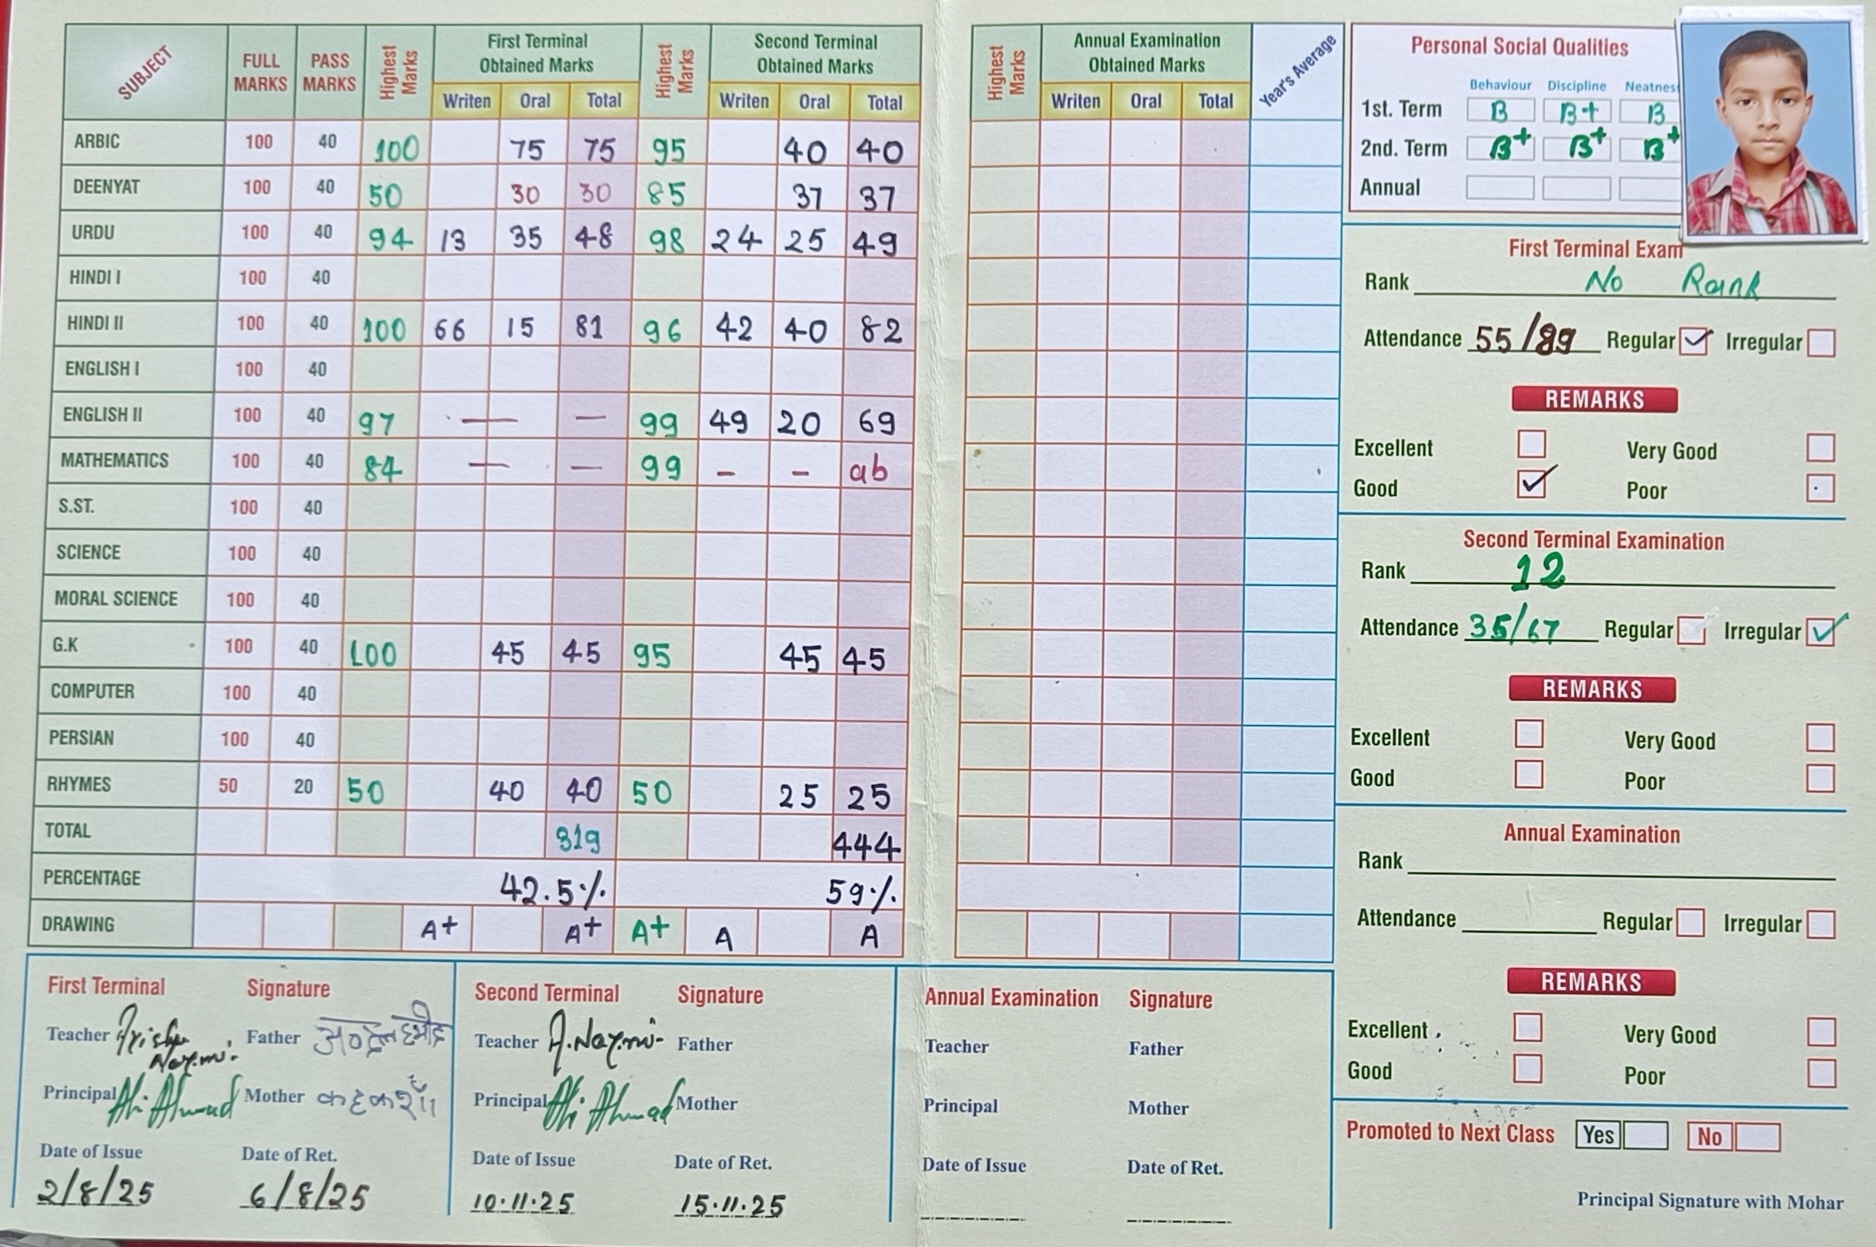 SUBJECT FULL MARKS PASS MARKS Highest Marks First Terminal Obtained Marks Writen Oral Total Highest Marks Second Terminal Obtained Marks Writen Oral Total
ARBIC 100 40 100 75 75 95 40 40
DEENYAT 100 40 50 30 30 85 37 37
URDU 100 40 94 13 35 48 98 24 25 49
HINDI I 100 40
HINDI II 100 40 100 66 15 81 96 42 40 82
ENGLISH I 100 40
ENGLISH II 100 40 97 — — 99 49 20 69
MATHEMATICS 100 40 84 — — 99 - - ab
S.ST. 100 40
SCIENCE 100 40
MORAL SCIENCE 100 40
G.K 100 40 100 45 45 95 45 45
COMPUTER 100 40
PERSIAN 100 40
RHYMES 50 20 50 40 40 50 25 25
TOTAL 319 444
PERCENTAGE 42.5% 59%
DRAWING A+ A+ A+ A A
First Terminal Signature
Teacher Father
Principal Ali Ahmad Mother कहकशाँ
Date of Issue Date of Ret.
2/8/25 6/8/25
Second Terminal Signature
Teacher A.Naymi Father
Principal Ali Ahmad Mother
Date of Issue Date of Ret.
10.11.25 15.11.25
Highest Marks Annual Examination Obtained Marks Writen Oral Total Year's Average
Annual Examination Signature
Teacher Father
Principal Mother
Date of Issue Date of Ret.
Personal Social Qualities
Behaviour Discipline
1st. Term B B+ B
2nd. Term B+ B+ B+
Annual
First Terminal Exam
Rank No Rank
Attendance 55/89 Regular Irregular
REMARKS
Excellent Very Good
Good Poor
Second Terminal Examination
Rank 12
Attendance 35/67 Regular Irregular
REMARKS
Excellent Very Good
Good Poor
Annual Examination
Rank
Attendance Regular Irregular
REMARKS
Excellent Very Good
Good Poor
Promoted to Next Class Yes No
Principal Signature with Mohar